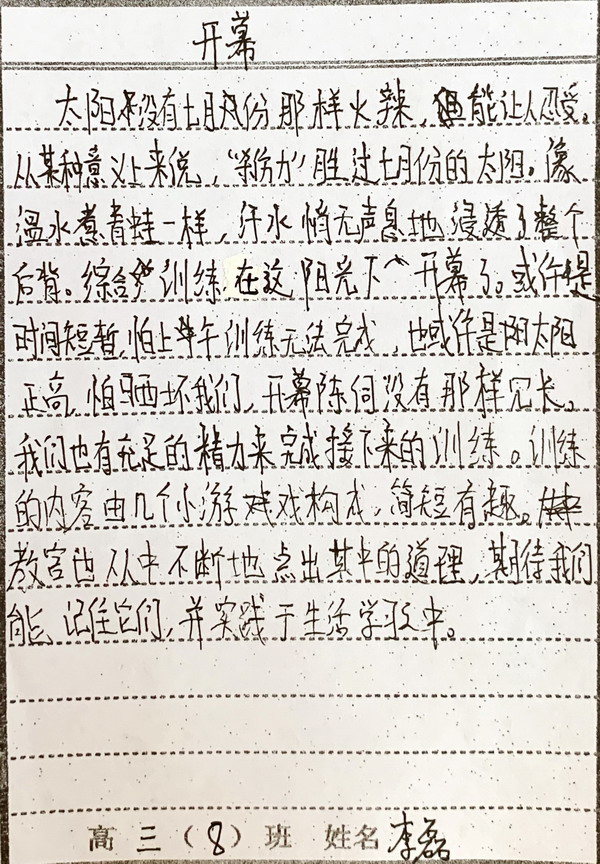 开幕
太阳没有七月份那样火辣，但能让人忍受。
从某种意义上来说，“杀伤力”胜过七月份的太阳。像
温水煮青蛙一样，汗水悄无声息地浸透了整个
后背。综合训练在这阳光下开幕了。或许是
时间短暂，怕上午训练无法完成，也或许是太阳
正高，怕晒坏我们，开幕陈词没有那样冗长。
我们也有充足的精力来完成接下来的训练。训练
的内容由几个小游戏构成，简短有趣。
教官也从中不断地点出其中的道理，期待我们
能记住它们，并实践于生活学习中。
高三（8）班 姓名 李磊